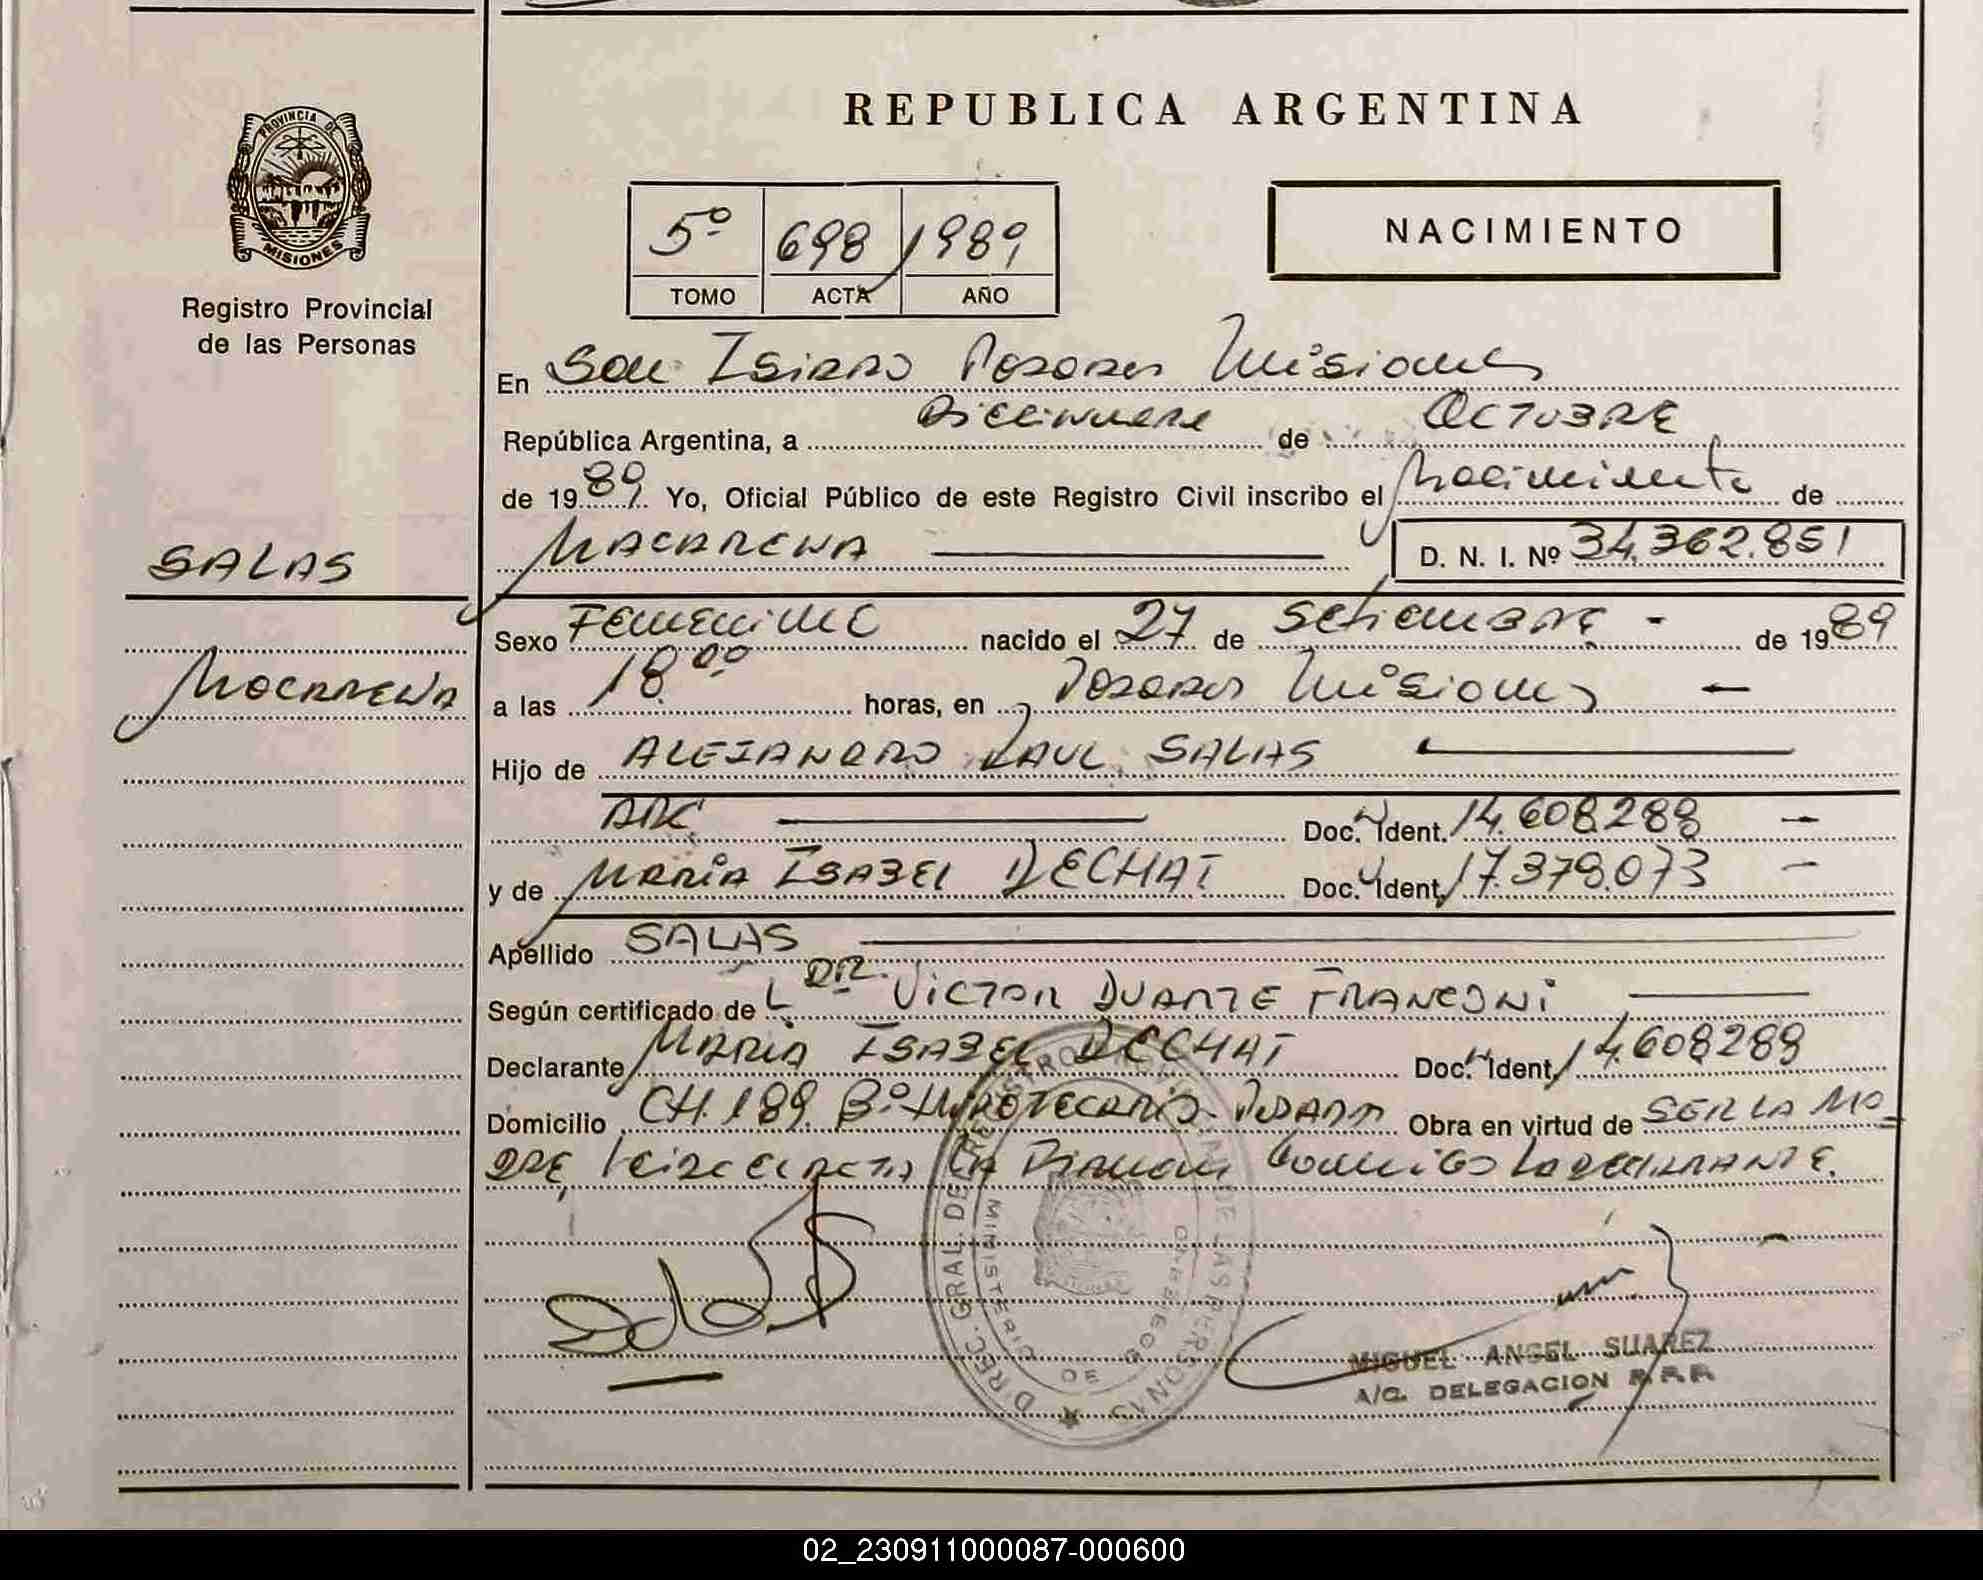 REPUBLICA ARGENTINA
PROVINCIA DE
MISIONES
Registro Provincial
de las Personas
5º 698 1989
TOMO ACTA AÑO
NACIMIENTO
En San Isidro Posadas Misiones
República Argentina, a Diecinueve de OCTUBRE
de 1989 Yo, Oficial Público de este Registro Civil inscribo el Nacimiento de
SALAS
MACARENA D. N. I. Nº 34.362.851
Sexo Femenino nacido el 27 de Setiembre - de 1989
Macarena
a las 18.00 horas, en Posadas Misiones
Hijo de ALEJANDRO RAUL SALAS
ARG. Doc. Ident. 14.608.288
y de MARIA ISABEL DECHAT Doc. Ident. 17.379.073
Apellido SALAS
Según certificado de DR. VICTOR DUARTE FRANCONI
Declarante MARIA ISABEL DECHAT Doc. Ident. 14.608288
Domicilio CH. 189. Bº HIPOTECARIO - POSADAS Obra en virtud de SER LA MA
DRE, Leida el acta la Firman Conmigo La declarante.
DIREC. GRAL. DEL REGISTRO PROVINCIAL DE LAS PERSONAS
MINISTERIO DE GOBIERNO
MIGUEL ANGEL SUAREZ
A/C. DELEGACION R.P.P.
02_230911000087-000600